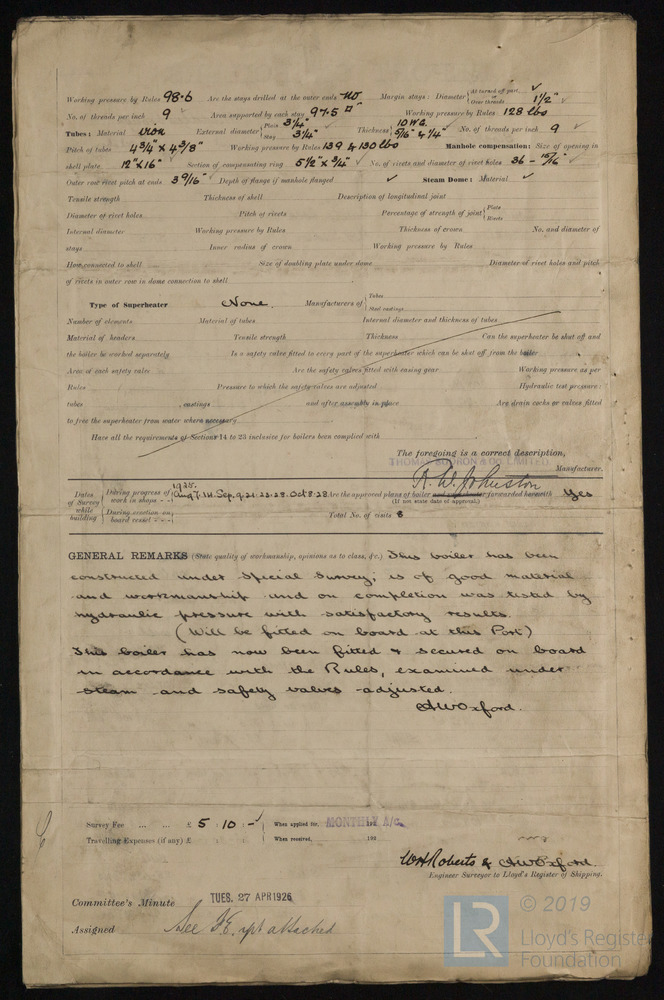 Working pressure by Rules 98.6 Are the stays drilled at the outer ends No Margin stays: Diameter { At turned off part, ✓ Over threads 1½" ✓
No. of threads per inch 9 ✓ Area supported by each stay 97.5 □" Working pressure by Rules 128 lbs
Tubes: Material iron External diameter { Plain 3¼" Stay 3¼" Thickness { 10 W.G. 5/16" & ¼" ✓ No. of threads per inch 9 ✓
Pitch of tubes 4¾" x 4⅜" Working pressure by Rules 139 & 130 lbs Manhole compensation: Size of opening in
shell plate 12" x 16" Section of compensating ring 5½" x ¾" ✓ No. of rivets and diameter of rivet holes 36 - 15/16" ✓
Outer row rivet pitch at ends 3 9/16" Depth of flange if manhole flanged ✓ Steam Dome: Material ✓
Tensile strength Thickness of shell Description of longitudinal joint
Diameter of rivet holes Pitch of rivets Percentage of strength of joint { Plate Rivets
Internal diameter Working pressure by Rules Thickness of crown No. and diameter of
stays Inner radius of crown Working pressure by Rules
How connected to shell Size of doubling plate under dome Diameter of rivet holes and pitch
of rivets in outer row in dome connection to shell
Type of Superheater None. Manufacturers of { Tubes Steel castings
Number of elements Material of tubes Internal diameter and thickness of tubes
Material of headers Tensile strength Thickness Can the superheater be shut off and
the boiler be worked separately Is a safety valve fitted to every part of the superheater which can be shut off from the boiler
Area of each safety valve Are the safety valves fitted with easing gear Working pressure as per
Rules Pressure to which the safety valves are adjusted Hydraulic test pressure:
tubes , castings and after assembly in place Are drain cocks or valves fitted
to free the superheater from water where necessary
Have all the requirements of Sections 14 to 23 inclusive for boilers been complied with
The foregoing is a correct description,
R. W. Johnston Manufacturer.
Dates of Survey while building { During progress of work in shops - - 1925. Aug 7. 14. Sep. 9. 21. 23. 28. Oct 8. 28 Are the approved plans of boiler and superheater forwarded herewith Yes
(If not state date of approval.)
During erection on board vessel - - - Total No. of visits 8
GENERAL REMARKS (State quality of workmanship, opinions as to class, &c.) This boiler has been
constructed under Special Survey; is of good material
and workmanship and on completion was tested by
hydraulic pressure with satisfactory results.
(Will be fitted on board at this Port)
This boiler has now been fitted & secured on board
in accordance with the Rules, examined under
steam and safety valves adjusted.
AWOxford.
Survey Fee ... ... £ 5 : 10 : - ✓ When applied for, MONTHLY A/c. 192
Travelling Expenses (if any) £ : : When received, 192
WHRoberts & AWOxford.
Engineer Surveyor to Lloyd's Register of Shipping.
Committee's Minute TUES. 27 APR 1926
Assigned See F.E. rpt attached
LR © 2019
Lloyd's Register
Foundation